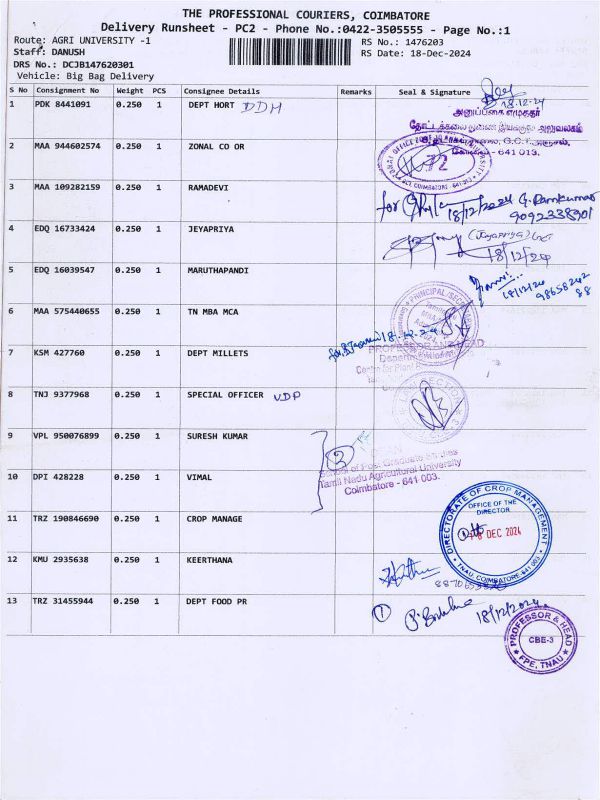 THE PROFESSIONAL COURIERS, COIMBATORE
Delivery Runsheet - PC2 - Phone No.:0422-3505555 - Page No.:1
Route: AGRI UNIVERSITY -1 RS No.: 1476203
Staff: DANUSH RS Date: 18-Dec-2024
DRS No.: DCJB147620301
Vehicle: Big Bag Delivery
S No Consignment No Weight PCS Consignee Details Remarks Seal & Signature
1 PDK 8441091 0.250 1 DEPT HORT DDH 18.12.24
தோட்டக்கலை
- 641 013.
2 MAA 944602574 0.250 1 ZONAL CO OR
72
COIMBATORE - 641 003
3 MAA 109282159 0.250 1 RAMADEVI
for 18/12/2024 G. Ramkumar
9092338901
4 EDQ 16733424 0.250 1 JEYAPRIYA (Jeyapriya)
18/12/24
5 EDQ 16039547 0.250 1 MARUTHAPANDI
18/12/24 98658242
88
6 MAA 575440655 0.250 1 TN MBA MCA
PRINCIPAL/SECRETARY
18.12.24
7 KSM 427760 0.250 1 DEPT MILLETS
PROFESSOR AND HEAD
Department of
Centre for Plant
8 TNJ 9377968 0.250 1 SPECIAL OFFICER VDP
SECTION
9 VPL 950076899 0.250 1 SURESH KUMAR
2
School of Post Graduate Studies
Tamil Nadu Agricultural University
Coimbatore - 641 003.
10 DPI 428228 0.250 1 VIMAL
11 TRZ 190846690 0.250 1 CROP MANAGE
DIRECTORATE OF CROP MANAGEMENT
OFFICE OF THE
DIRECTOR
18 DEC 2024
TNAU, COIMBATORE-641 003
12 KMU 2935638 0.250 1 KEERTHANA
13 TRZ 31455944 0.250 1 DEPT FOOD PR
1 18/12/2024
PROFESSOR & HEAD
CBE-3
FPE, TNAU